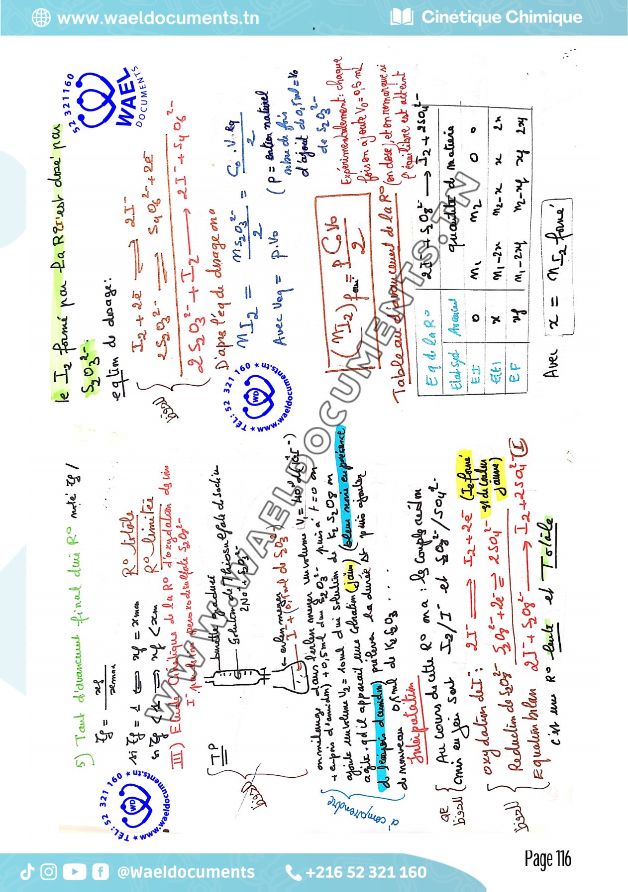 www.waeldocuments.tn
Cinétique Chimique
5) Taux d'avancement final d'une R° noté τf /
τf = xf / xmax
si τf = 1 ⟺ xf = xmax R° totale
si τf < 1 ⟺ xf < xm R° limitée
III) Etude Cinétique de la R° d'oxydation des ions
I⁻ par les ions peroxodisulfate S2O8²⁻
T.P
burette graduée
Solution de Thiosulfate de Sodium
2Na⁺ + S2O3²⁻
erlenmeyer
I⁻ + (0,5 mL de S2O3²⁻)
a comprendre
on mélange dans l'erlenmeyer un volume V1 = 40
+ empois d'amidon) + 0,5 mL de S2O3²⁻ puis à t=0 on
ajoute un volume V2 = 10 mL d'une solution de K2S2O8 on
agite. qd il apparait une coloration (bleu noir en présence
de l'empois d'amidon) la durée et puis ajouter
de nouveau 0,5 mL de K2S2O3 . . . .
Interprétation
Au cours de cette R° on a : les couples redox
mis en jeu sont I2/I⁻ et S2O8²⁻/SO4²⁻
Oxydation de I⁻ : 2I⁻ ⇌ I2 + 2e⁻ (I2 formé
Reduction de S2O8²⁻ S2O8²⁻ + 2e⁻ ⇌ 2SO4²⁻ de couleur jaune)
Equation bilan 2I⁻ + S2O8²⁻ → I2 + 2SO4²⁻ (I
c'est une R° lente et Totale
le I2 formé par la R° est dosé par
S2O3²⁻
eqtion de dosage :
I2 + 2e⁻ ⇌ 2I⁻
2S2O3²⁻ ⇌ S4O6²⁻ + 2e⁻
2S2O3²⁻ + I2 → 2I⁻ + S4O6²⁻
D'après l'éq de dosage on a
nI2 = nS2O3²⁻ / 2 = C0.Véq / 2
Avec Véq = p.V0 (P = entier naturel
nbre de fois
d'ajout de 0,5 mL = V0
de S2O3²⁻
(nI2)formé = p C0V0 / 2
Expérimentalement : chaque
fois on ajoute V0 = 0,5 mL
on dose, et on remarque si
l'équilibre est atteint
Tableau d'avancement de la R°
Eq de la R° 2I⁻ + S2O8²⁻ → I2 + 2SO4²⁻
Etat syst Avancmt quantité de matière
E I 0 n1 n2 0 0
Et t x n1-2x n2-x x 2x
E F xf n1-2xf n2-xf xf 2xf
Avec x = nI2 formé
WAEL
DOCUMENTS
52 321 160
TÉL: 52 321 160 * www.waeldocuments.tn
TÉL: 52 321 160 * www.waeldocuments.tn
WWW.WAELDOCUMENTS.TN
Page 116
@Waeldocuments
+216 52 321 160